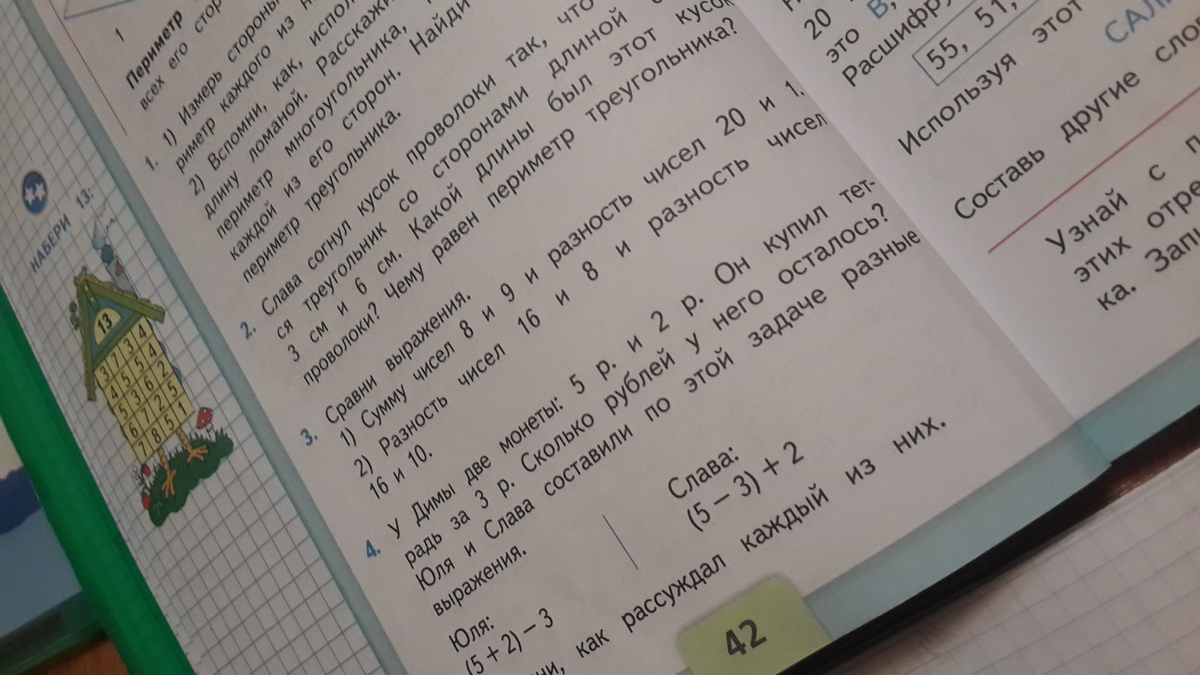 1
Периметр
всех его
1. 1) Измерь
риметр каждого из
2) Вспомни, как,
длину ломаной. Расскажи
периметр многоугольника,
каждой из его сторон. Найди
периметр треугольника.
2. Слава согнул кусок проволоки так, что
ся треугольник со сторонами длиной
3 см и 6 см. Какой длины был этот кусок
проволоки? Чему равен периметр треугольника?
3. Сравни выражения.
1) Сумму чисел 8 и 9 и разность чисел 20 и 1.
2) Разность чисел 16 и 8 и разность чисел
16 и 10.
4. У Димы две монеты: 5 р. и 2 р. Он купил тет-
радь за 3 р. Сколько рублей у него осталось?
Юля и Слава составили по этой задаче разные
выражения.
Юля:
(5 + 2) − 3
Слава:
(5 − 3) + 2
как рассуждал каждый из них.
42
НАБЕРИ 13:
13
3 7 3 4
4 5 5 4
5 3 6 2
6 7 2 5
7 8 5 1
20
это В,
55, 51,
Используя этот
Составь другие
Узнай с
этих
ка.